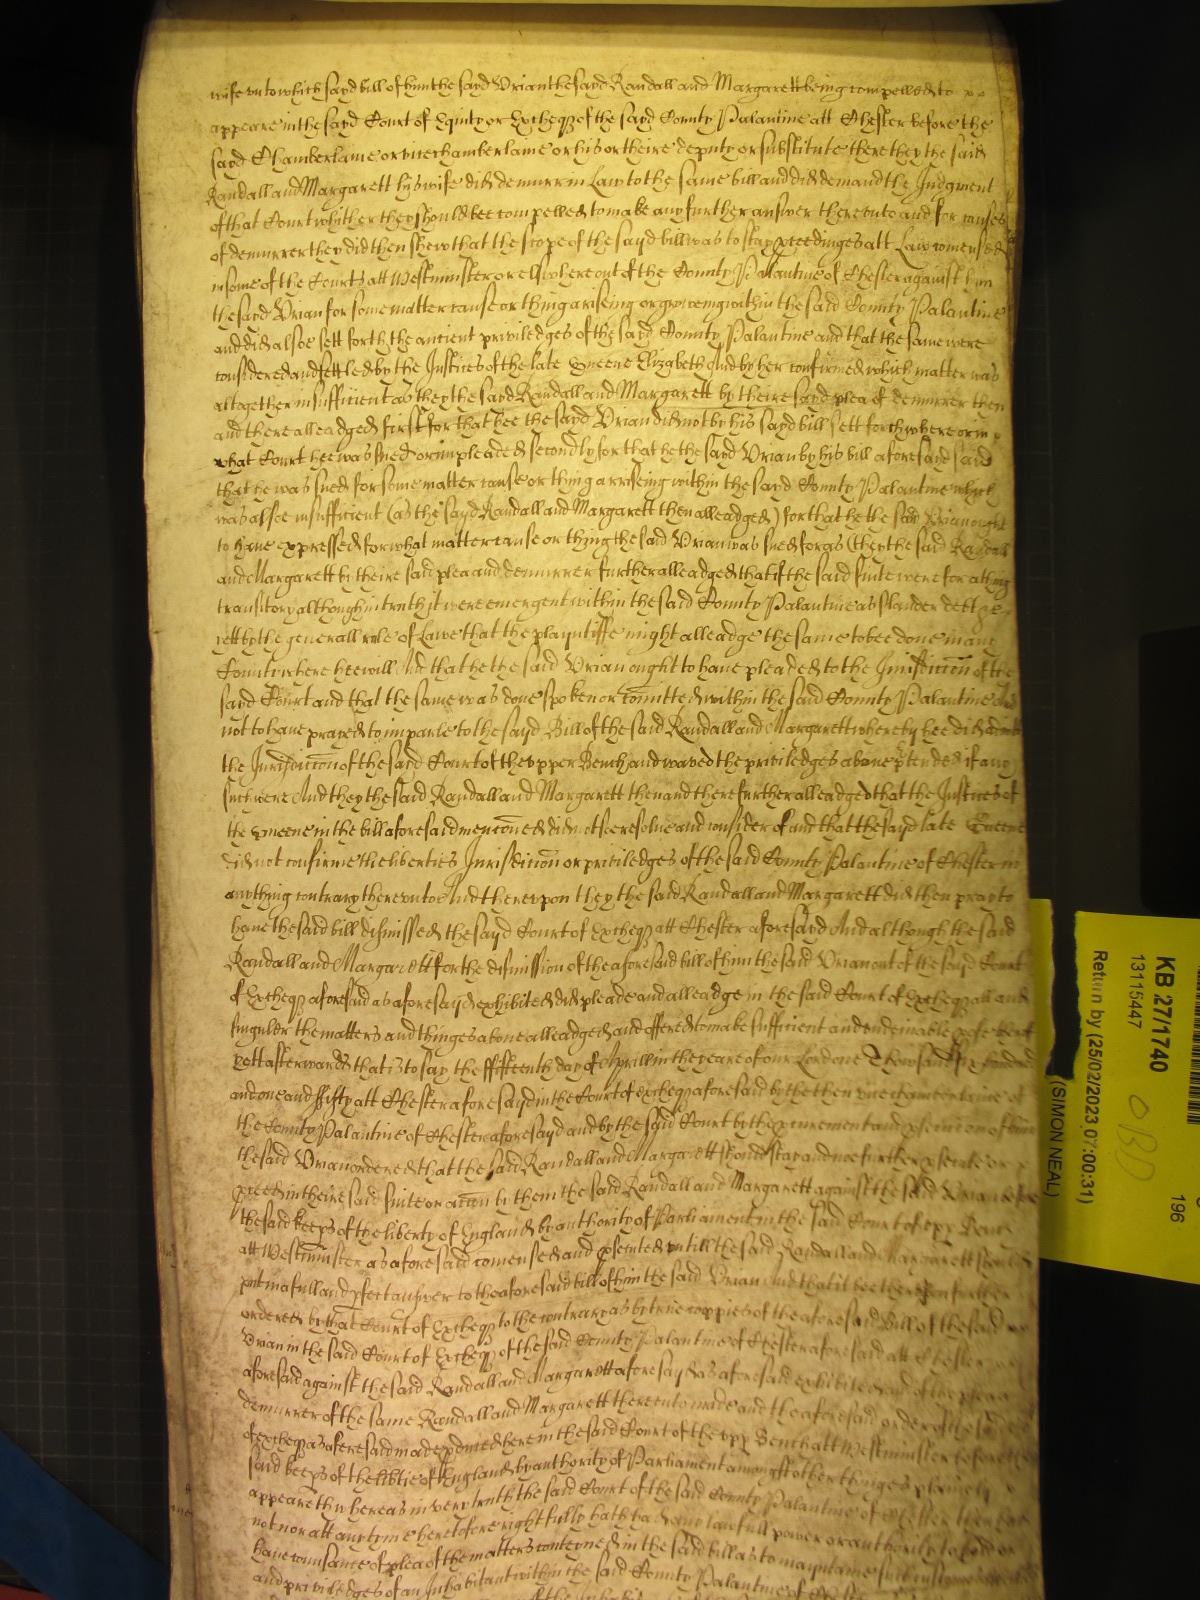 wife unto which sayd bill of him the sayd Vrian the sayd Randall and Margarett being compelled to
appeare in the sayd Court of Equity or Excheqr of the sayd County Palantine att Chester before the
sayd Chamberlaine or vicechamberlaine or his or theire deputy or substitute there they the said
Randall and Margarett his wife did demurr in Law to the same bill and did demand the Judgment
of that Court whither they should bee compelled to make any further answer thereunto and for causes
of demurrer they did then shew that the scope of the sayd bill was to stay pceedinges att Law comensed
in some of the Courts att Westminster or elswhere out of the County Palantine of Chester against him
the sayd Vrian for some matter cause or thing ariseing or groweing within the said County Palantine
and did alsoe sett forth the ancient priviledges of the sayd County Palantine and that the same were
considered and settled by the Justices of the late Queene Elizabeth And by her confirmed which matter was
altogether insufficient as they the sayd Randall and Margarett by theire sayd plea of demurrer then
and there alleadged first for that hee the sayd Vrian did not by his sayd bill sett forth where or in
what Court hee was sued or impleaded secondly for that he the sayd Vrian by his bill aforesayd said
that he was sued for some matter cause or thing arriseing within the sayd County Palantine which
was alsoe insufficient (as the sayd Randall and Margarett then alleadged) for that he the said Vrian ought
to have expressed for what matter cause or thing the said Vrian was sued for as (they the said Randall
and Margarett by theire said plea and demurrer further alleadged that if the said suite were for a thing
transitory although in truth it were emergent within the said County Palantine as slander debt
yett by the generall rule of Lawe that the playntiffe might alleadge the same to bee done in any
County where hee will And that he the said Vrian ought to have pleaded to the Jurisdiccion of the
sayd Court and that the same was done spoken or comitted within the said County Palantine and
not to have prayed to imparle to the sayd Bill of the said Randall and Margarett whereby hee did admitt
the Jurisdiccion of the said Court of the vpper Bench and waved the priviledges above ptended if any
such were And they the said Randall and Margarett then and there further alleadged that the Justices of
the Queene in the bill aforesaid mencioned did not soe resolve and consider of and that the sayd late Queene
did not confirme the liberties Jurisdiccion or priviledges of the said County Palantine of Chester in
anything contrary thereunto And thereupon they the said Randall and Margarett did then pray to
have the said bill dismissed the sayd Court of Excheqr att Chester aforesayd And although the said
Randall and Margarett for the dismission of the aforesaid bill of him the said Vrian out of the sayd Court
of Excheqr aforesaid as aforesayd exhibited did pleade and alleadge in the said Court of Excheqr all and
singuler the matters and thinges above alleadged and offered to make sufficient and undeniable
yett afterwards that is to say the ffifteenth day of Aprill in the yeare of our Lord one Thowsand six hundred
and one and ffifty att Chester aforesayd in the Court of excheqr aforesaid by the then vice chamberlaine of
the County Palantine of Chester aforesayd and by the said Court by the procurement and psecucion of him
the said Vrian ordered that the said Randall and Margarett should stay and noe further psecute or
pceed in theire said suite or accion by them the said Randall and Margarett against the said Vrian before
the said keeps of the liberty of England by authority of Parliament in the said Court of vpp Bench
att Westminster as aforesaid comensed and psecuted untill the said Randall and Margarett should
put in a full and pfect answer to the aforesaid bill of him the said Vrian And that it bee thereupon further
ordered by that Court of Excheqr to the contrary as by true coppies of the aforesaid Bill of the said
Vrian in the said Court of Excheqr of the said County Palantine of Chester aforesaid att Chester
aforesaid against the said Randall and Margarett aforesayd as aforesaid exhibited and of the plea
demurrer of the same Randall and Margarett thereunto made and the aforesaid order of the said Court
of excheqr as aforesaid made pduced here in the said Court of the vpp Bench att Westminster before the
said keeps of the libtie of England by authority of Parliament amongst other thinges plainely
appeareth whereas in very truth the said Court of the said County Palantine of Chester
not nor att any tyme heretofore rightfully hath had any lawfull power or authority to hold or
have conusance of plea of the matters conteyned in the said bill as to maynteyne
and priviledges of an Inhabitant within the said County Palantine of Chester
KB 27/1740
13115447
Return by (25/02/2023 07:00:31)
(SIMON NEAL)
196
OBD